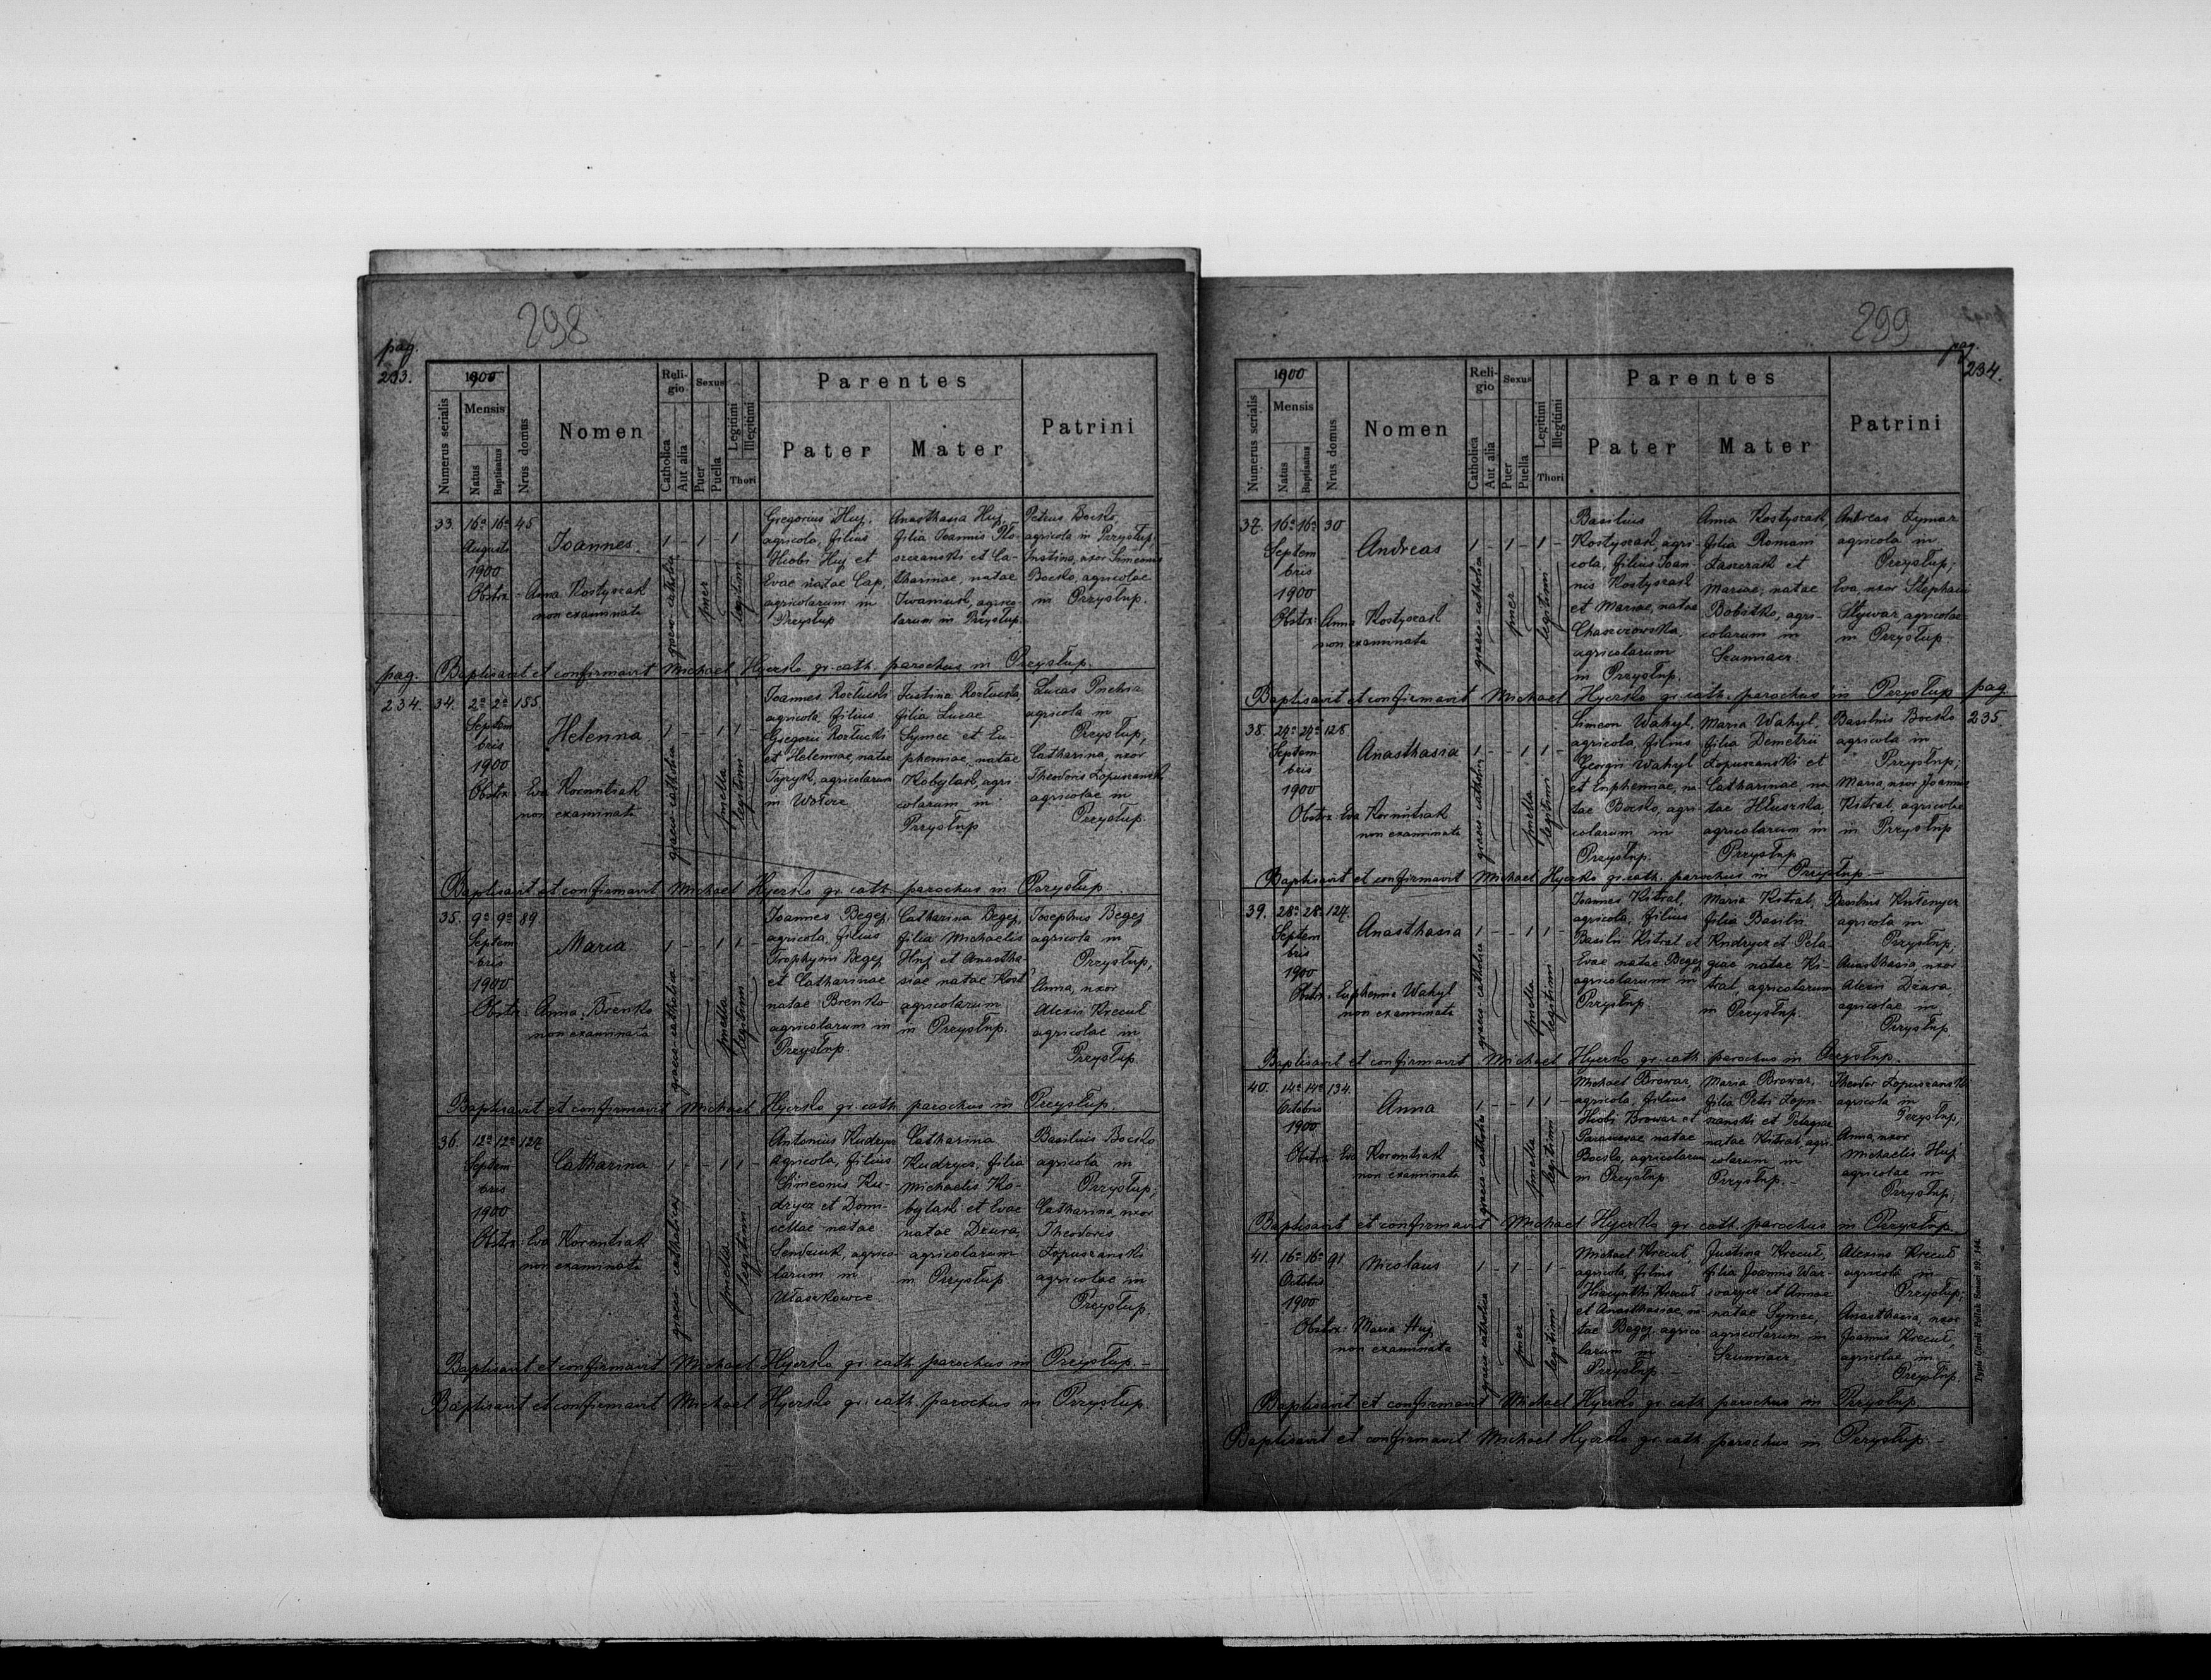 298
pag.
233.
1900
Numerus serialis
Mensis
Natus
Baptisatus
Nrus domus
Nomen
Religio
Catholica
Aut alia
Sexus
Puer
Puella
Legitimi
Illegitimi
Thori
Parentes
Pater
Mater
Patrini
33. 16a 16a 45
Augusti
1900
Joannes
1 - 1 - 1
Obstrx - Anna Kostyszak
non examinata
graeco-catholica
puer
legitimi
Gregorius Huj,
agricola, filius
Hiobi Huj et
Evae natae Cap,
agricolarum in
Przysłup
Anasthasia Huj,
filia Joannis
et Ca-
tharinae, natae
Iwaniuk, agrico-
larum in Przysłup.
Petrus Bocsko
agricola in Przysłup;
Justina, uxor Simeonis
Bocsko, agricolae
in Przysłup.
Baptisavit et confirmavit Michael Hyerko gr. cath. parochus in Przysłup.
pag.
234.
34. 2a 2a 155.
Septem
bris
1900
Helenna
1 - - 1 1 -
Obstrx: Eva
non examinata
graeco-catholica
puella
legitimi
Joannes Roztucki
agricola, filius
Gregorii Roztucki
et Helennae, natae
agricolarum
in Wołcze
Justina Roztucka,
filia Lucae
Symec et Eu-
phemiae, natae
Kobylak, agri-
colarum in
Przysłup
Lucas
agricola in
Przysłup;
Catharina, uxor
Theodoris Łopuszanski
agricolae in
Przysłup.
Baptisavit et confirmavit Michael Hyerko gr. cath. parochus in Przysłup
35. 9a 9a 89
Septem
bris
1900
Maria
1 - - 1 1 -
Obstrx: Anna Brenko
non examinata
graeco-catholica
puella
legitimi
Joannes Begej,
agricola, filius
Trophymi Begej
et Catharinae
natae Brenko
agricolarum in
Przysłup.
Catharina Begej,
filia Michaelis
Huj et Anastha-
siae natae
agricolarum
in Przysłup.
Josephus Begej
agricola in
Przysłup;
Anna, uxor
Alexii Krecuł
agricolae in
Przysłup
Baptisavit et confirmavit Michael Hyerko gr. cath. parochus in Przysłup.
36. 12a 12a 127
Septem
bris
1900
Catharina
1 - - 1 1 -
Obstrx: Eva
non examinata
graeco-catholica
puella
legitimi
Antonius Kudrycz
agricola, filius
Simeonis Ku-
drycz et Domi-
cellae natae
agrico-
larum in
Ułaszkowce
Catharina
Kudrycz, filia
Michaelis Ko-
bylak et Evae
natae Dzura,
agricolarum
in Przysłup.
Basilius Bocsko
agricola in
Przysłup;
Catharina, uxor
Theodoris
Łopuszanski
agricolae in
Przysłup.
Baptisavit et confirmavit Michael Hyerko gr. cath. parochus in Przysłup. -
Baptisavit et confirmavit Michael Hyerko gr. cath. parochus in Przysłup.
299
pag.
234.
1900
Numerus serialis
Mensis
Natus
Baptisatus
Nrus domus
Nomen
Religio
Catholica
Aut alia
Sexus
Puer
Puella
Legitimi
Illegitimi
Thori
Parentes
Pater
Mater
Patrini
37. 16a 16a 30
Septem
bris
1900
Andreas
1 - 1 - 1 -
Obstrx: Anna Kostyszak
non examinata
graeco-catholica
puer
legitimi
Basilius
Kostyszak, agri-
cola, filius Joan-
nis Kostyszak
et Mariae, natae
agricolarum
in Przysłup.
Anna Kostyszak,
filia Romani
et
Mariae, natae
Babitko, agri-
colarum in
Szumiacz
Andreas Zymar
agricola in
Przysłup;
Eva, uxor Stephani
agricolae
in Przysłup.
Baptisavit et confirmavit Michael Hyerko gr. cath. parochus in Przysłup
pag.
235.
38. 24a 24a 128
Septem
bris
1900
Anasthasia
1 - - 1 1 -
Obstrx: Eva
non examinata
graeco-catholica
puella
legitimi
Simeon Wahyl,
agricola, filius
Georgii Wahyl
et Euphemiae, na-
tae Bocsko, agri-
colarum in
Przysłup.
Maria Wahyl,
filia Demetrii
Łopuszanski et
Catharinae na-
tae
agricolarum in
Przysłup
Basilius Bocsko
agricola in
Przysłup;
Maria, uxor Joannis
Kitral, agricolae
in Przysłup
Baptisavit et confirmavit Michael Hyerko gr. cath. parochus in Przysłup. -
39. 28a 28a 127.
Septem
bris
1900
Anasthasia
1 - - 1 1 -
Obstrx: Euphemia Wahyl
non examinata
graeco-catholica
puella
legitimi
Joannes Kitral,
agricola, filius
Basilii Kitral et
Evae natae Begej
agricolarum in
Przysłup
Maria Kitral,
filia Basilii
Kudrycz et Pela-
giae natae Ki-
tral, agricolarum
in Przysłup
Basilius
agricola in
Przysłup;
Anasthasia uxor
Alexii Dzura,
agricolae in
Przysłup
Baptisavit et confirmavit Michael Hyerko gr. cath. parochus in Przysłup.
40. 14a 14a 134.
Octobris
1900
Anna
1 - - 1 1 -
Obstrx: Eva
non examinata
graeco-catholica
puella
legitimi
Michael Browar,
agricola, filius
Hiobi Browar et
natae
Bocsko, agricolarum
in Przysłup
Maria Browar,
filia Petri Łopu-
szanski et Pelagiae
natae Kitral, agri-
colarum in
Przysłup. -
Theodor Łopuszanski
agricola in
Przysłup;
Anna, uxor
Michaelis Huj
agricolae in
Przysłup;
Baptisavit et confirmavit Michael Hyerko gr. cath. parochus in Przysłup
41. 16a 16a 91
Octobris
1900
Nicolaus
1 - 1 - 1 -
Obstrx: Maria Huj
non examinata
graeco-catholica
puer
legitimi
Michael Krecuł,
agricola, filius
Hiacynthi Krecuł
et Anasthasiae, na-
tae Begej agrico-
larum in
Przysłup -
Justina Krecuł,
filia Joannis
et Annae
natae Symec,
agricolarum in
Szumiacz,
Alexius Krecuł
agricola in
Przysłup;
Anasthasia, uxor
Joannis Krecuł,
agricolae in
Przysłup
Baptisavit et confirmavit Michael Hyerko gr. cath. parochus in Przysłup
Baptisavit et confirmavit Michael Hyerko gr. cath. parochus in Przysłup. -